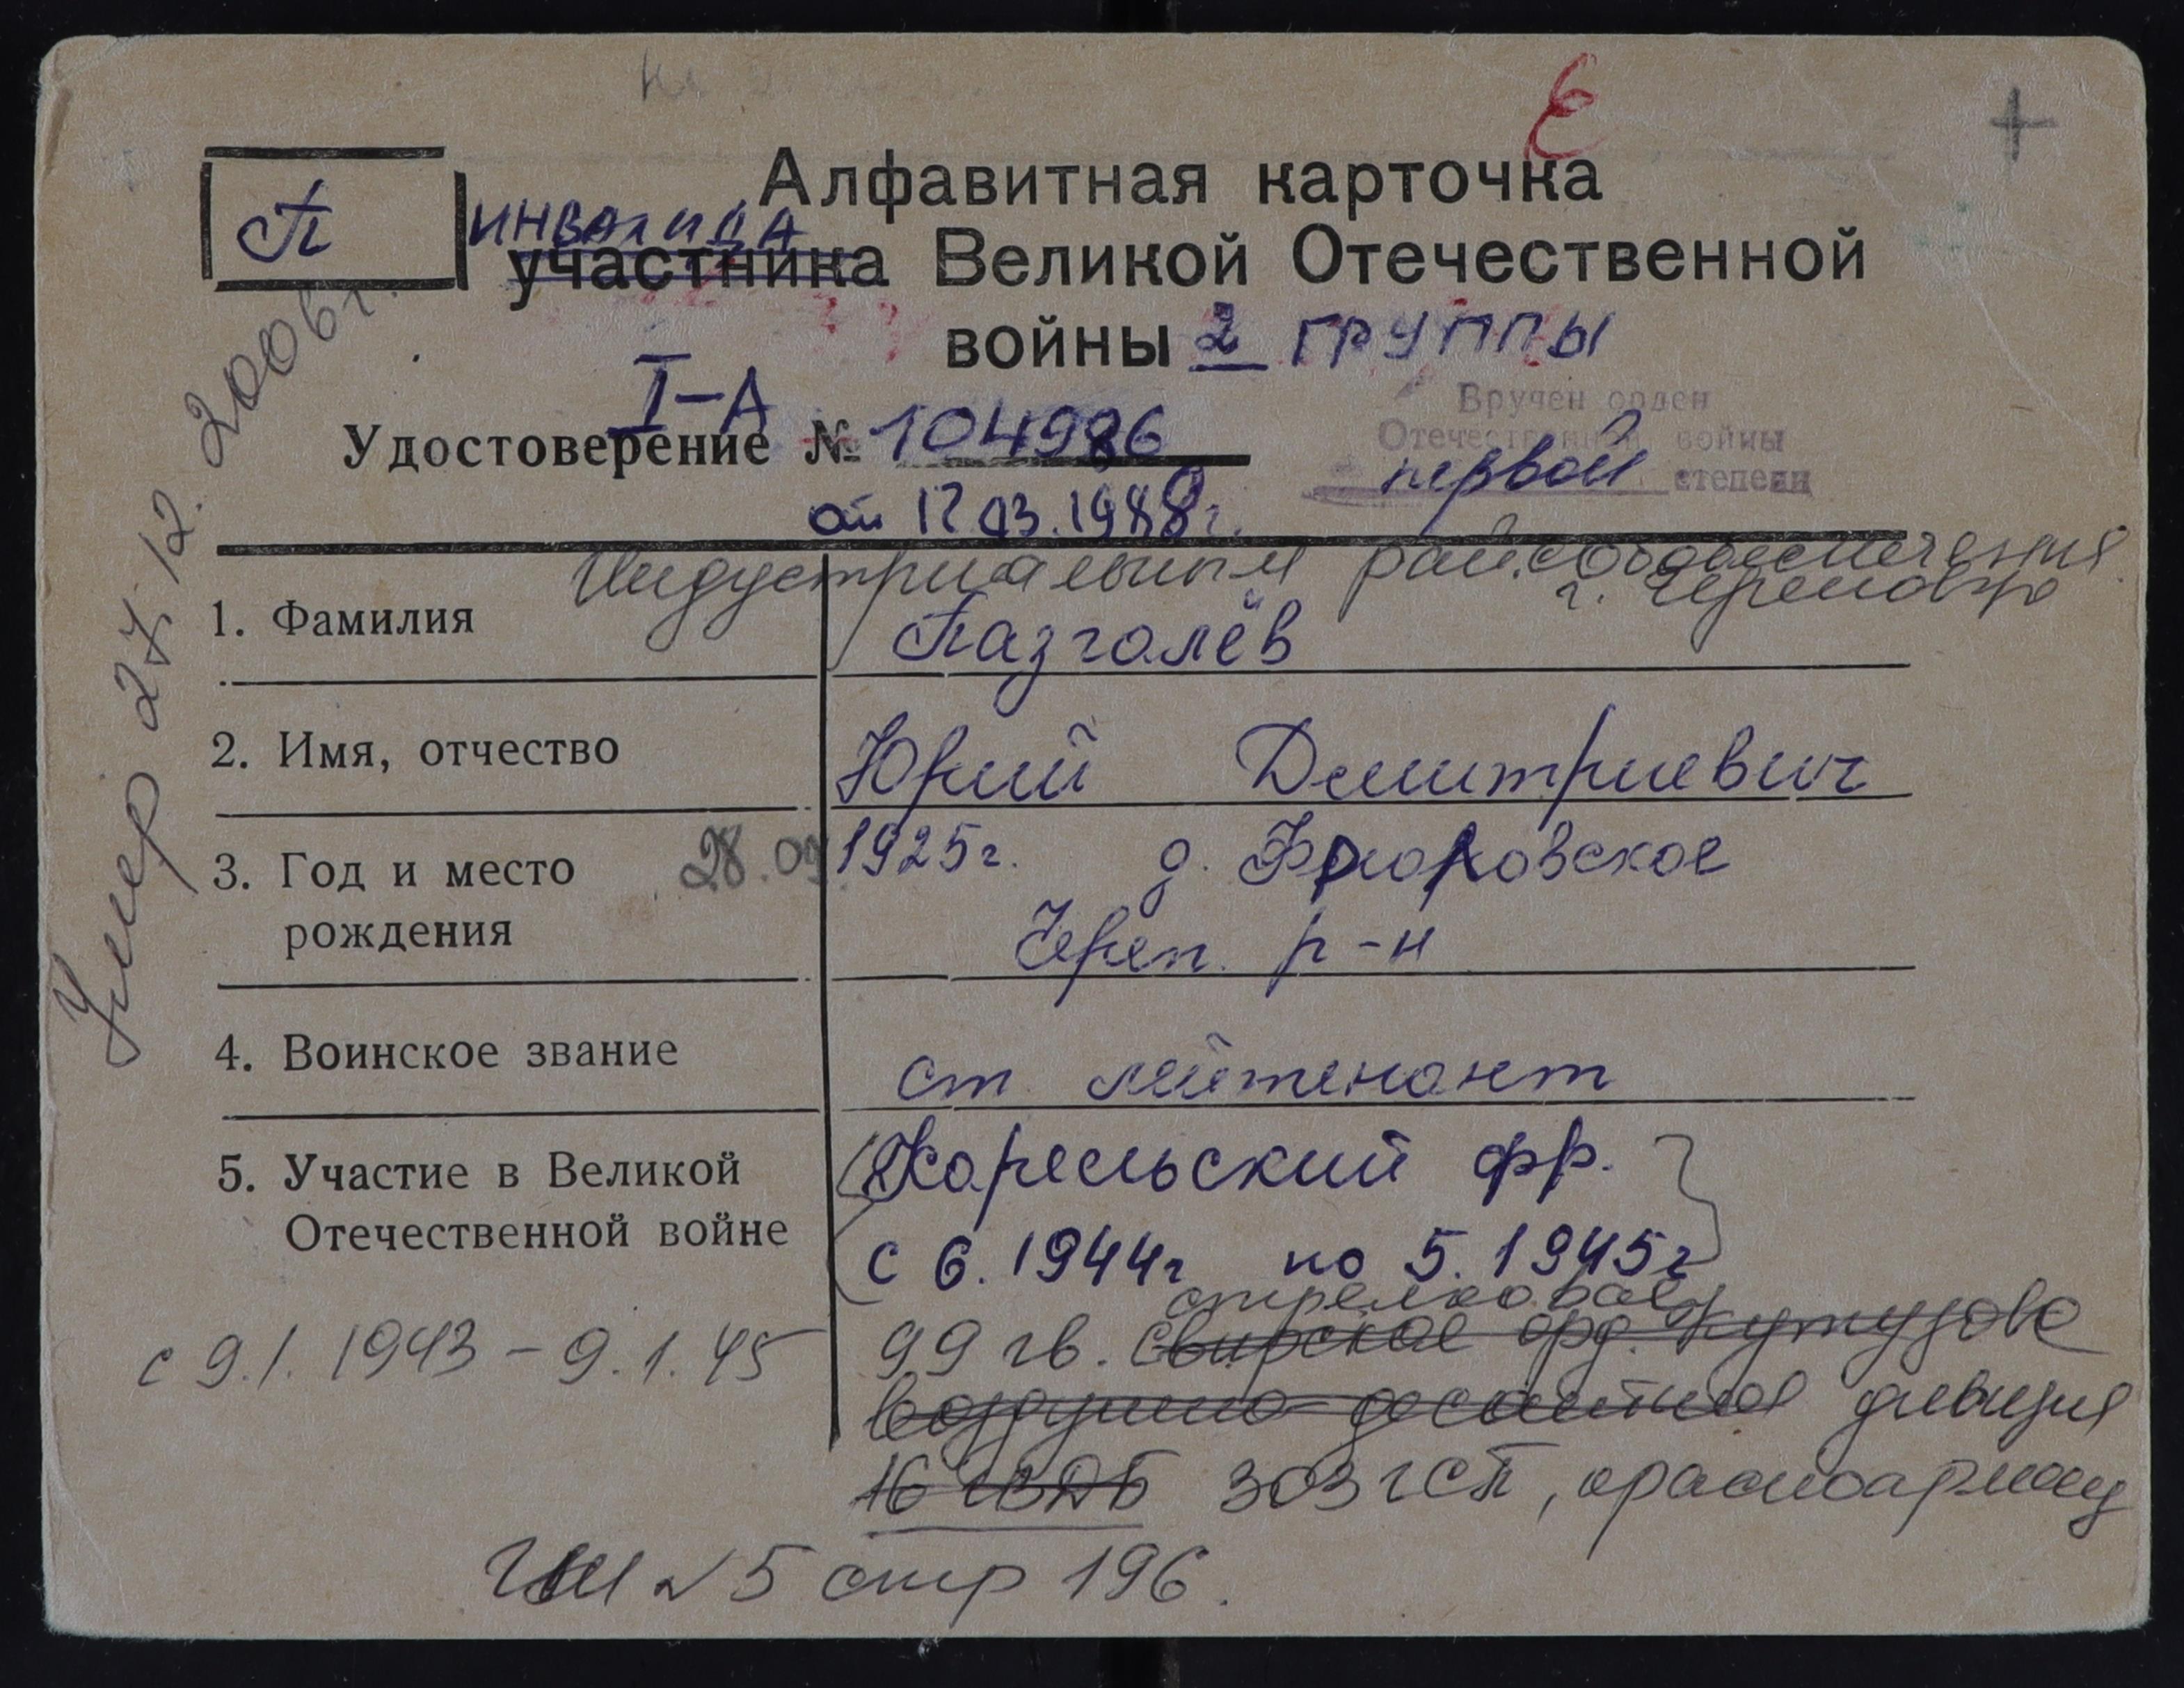 Е
+
Алфавитная карточка
П
ИНВАЛИДА
участника Великой Отечественной
войны 2 ГРУППЫ
I-А
Удостоверение № 104986
Вручен орден
Отечественной войны
первой степени
от 17.03.1988г.
Индустриальным райсобобеспечения
г. Череповца
1. Фамилия Пазголёв
2. Имя, отчество Юрий Дмитриевич
3. Год и место 28.09. 1925г. д.
рождения Череп. р-н
4. Воинское звание ст. лейтенант
5. Участие в Великой Карельский фр.
Отечественной войне с 6.1944г по 5.1945г
стрелковая
с 9.1.1943 - 9.1.45 99 гв. Свирская орд. Кутузова
воздушно-десантная дивизия
16 303 гСП, красноармеец
№5 стр 196.
Умер 27.12.2006г.